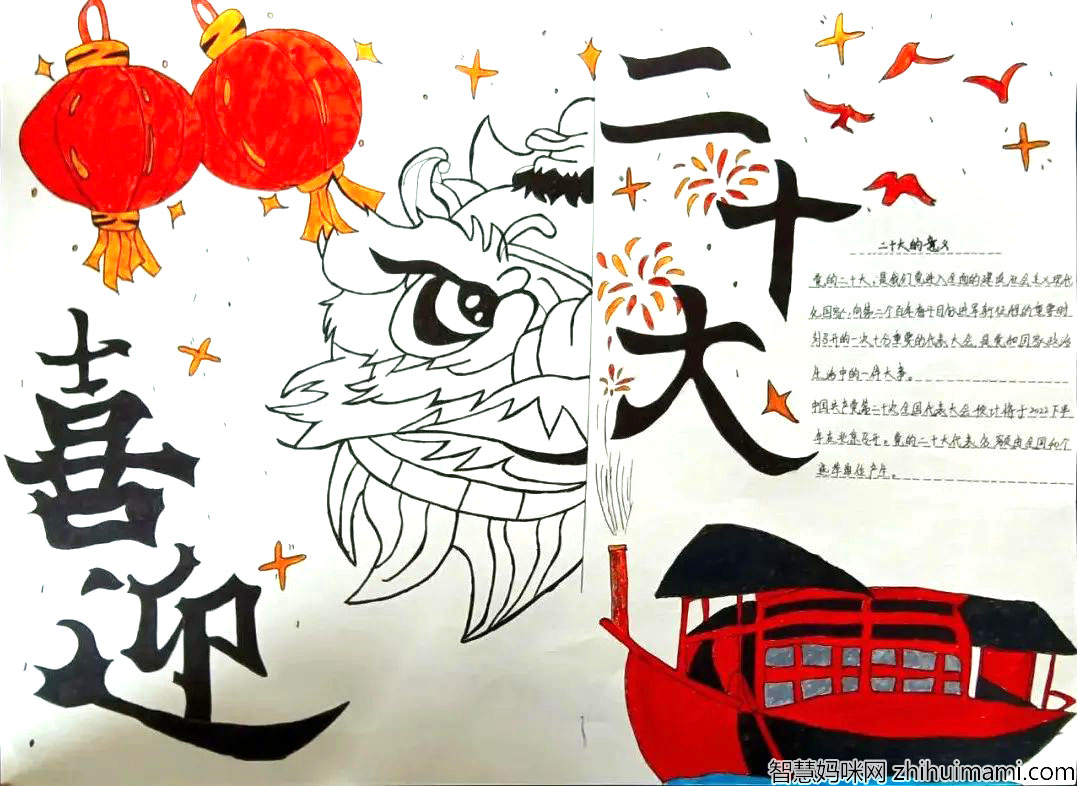 喜迎
二十大
二十大的意义
党的二十大,是我们党进入全面的建设社会主义现代
化国家,向第二个百年奋斗目标进军新征程的重要时
刻召开的一次十分重要的代表大会,是党和国家政治
生活中的一件大事。
中国共产党第二十次全国代表大会预计将于2022下半
年在北京召开。党的二十大代表名额由全国40个
选举单位产生。
智慧妈咪网 zhihuimami.com